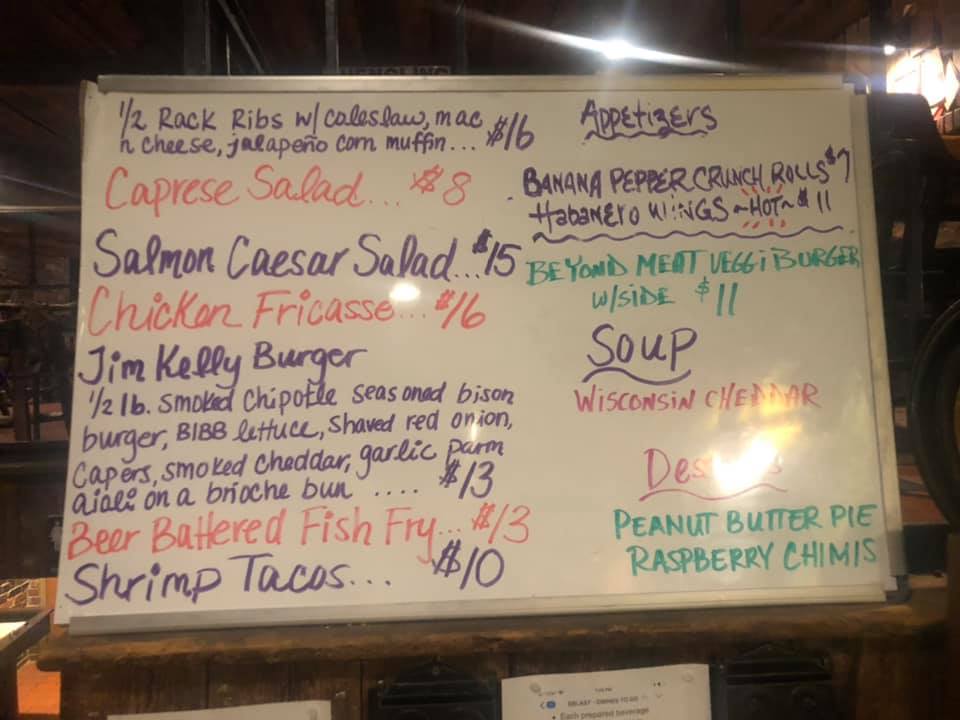 1/2 Rack Ribs w/ coleslaw, mac
n cheese, jalapeño corn muffin... $16
Caprese Salad... $8
Salmon Caesar Salad...$15
Chicken Fricasse... $16
Jim Kelly Burger
1/2 lb. smoked chipotle seasoned bison
burger, BIBB lettuce, shaved red onion,
capers, smoked cheddar, garlic parm
aioli on a brioche bun .... $13
Beer Battered Fish Fry... $13
Shrimp Tacos... $10
Appetizers
BANANA PEPPER CRUNCH ROLLS $7
Habanero WINGS ~HOT~ $11
BEYOND MEAT VEGGi BURGER
W/SIDE $11
Soup
WISCONSIN CHEDDAR
PEANUT BUTTER PIE
RASPBERRY CHIMIS
• Each prepared beverage